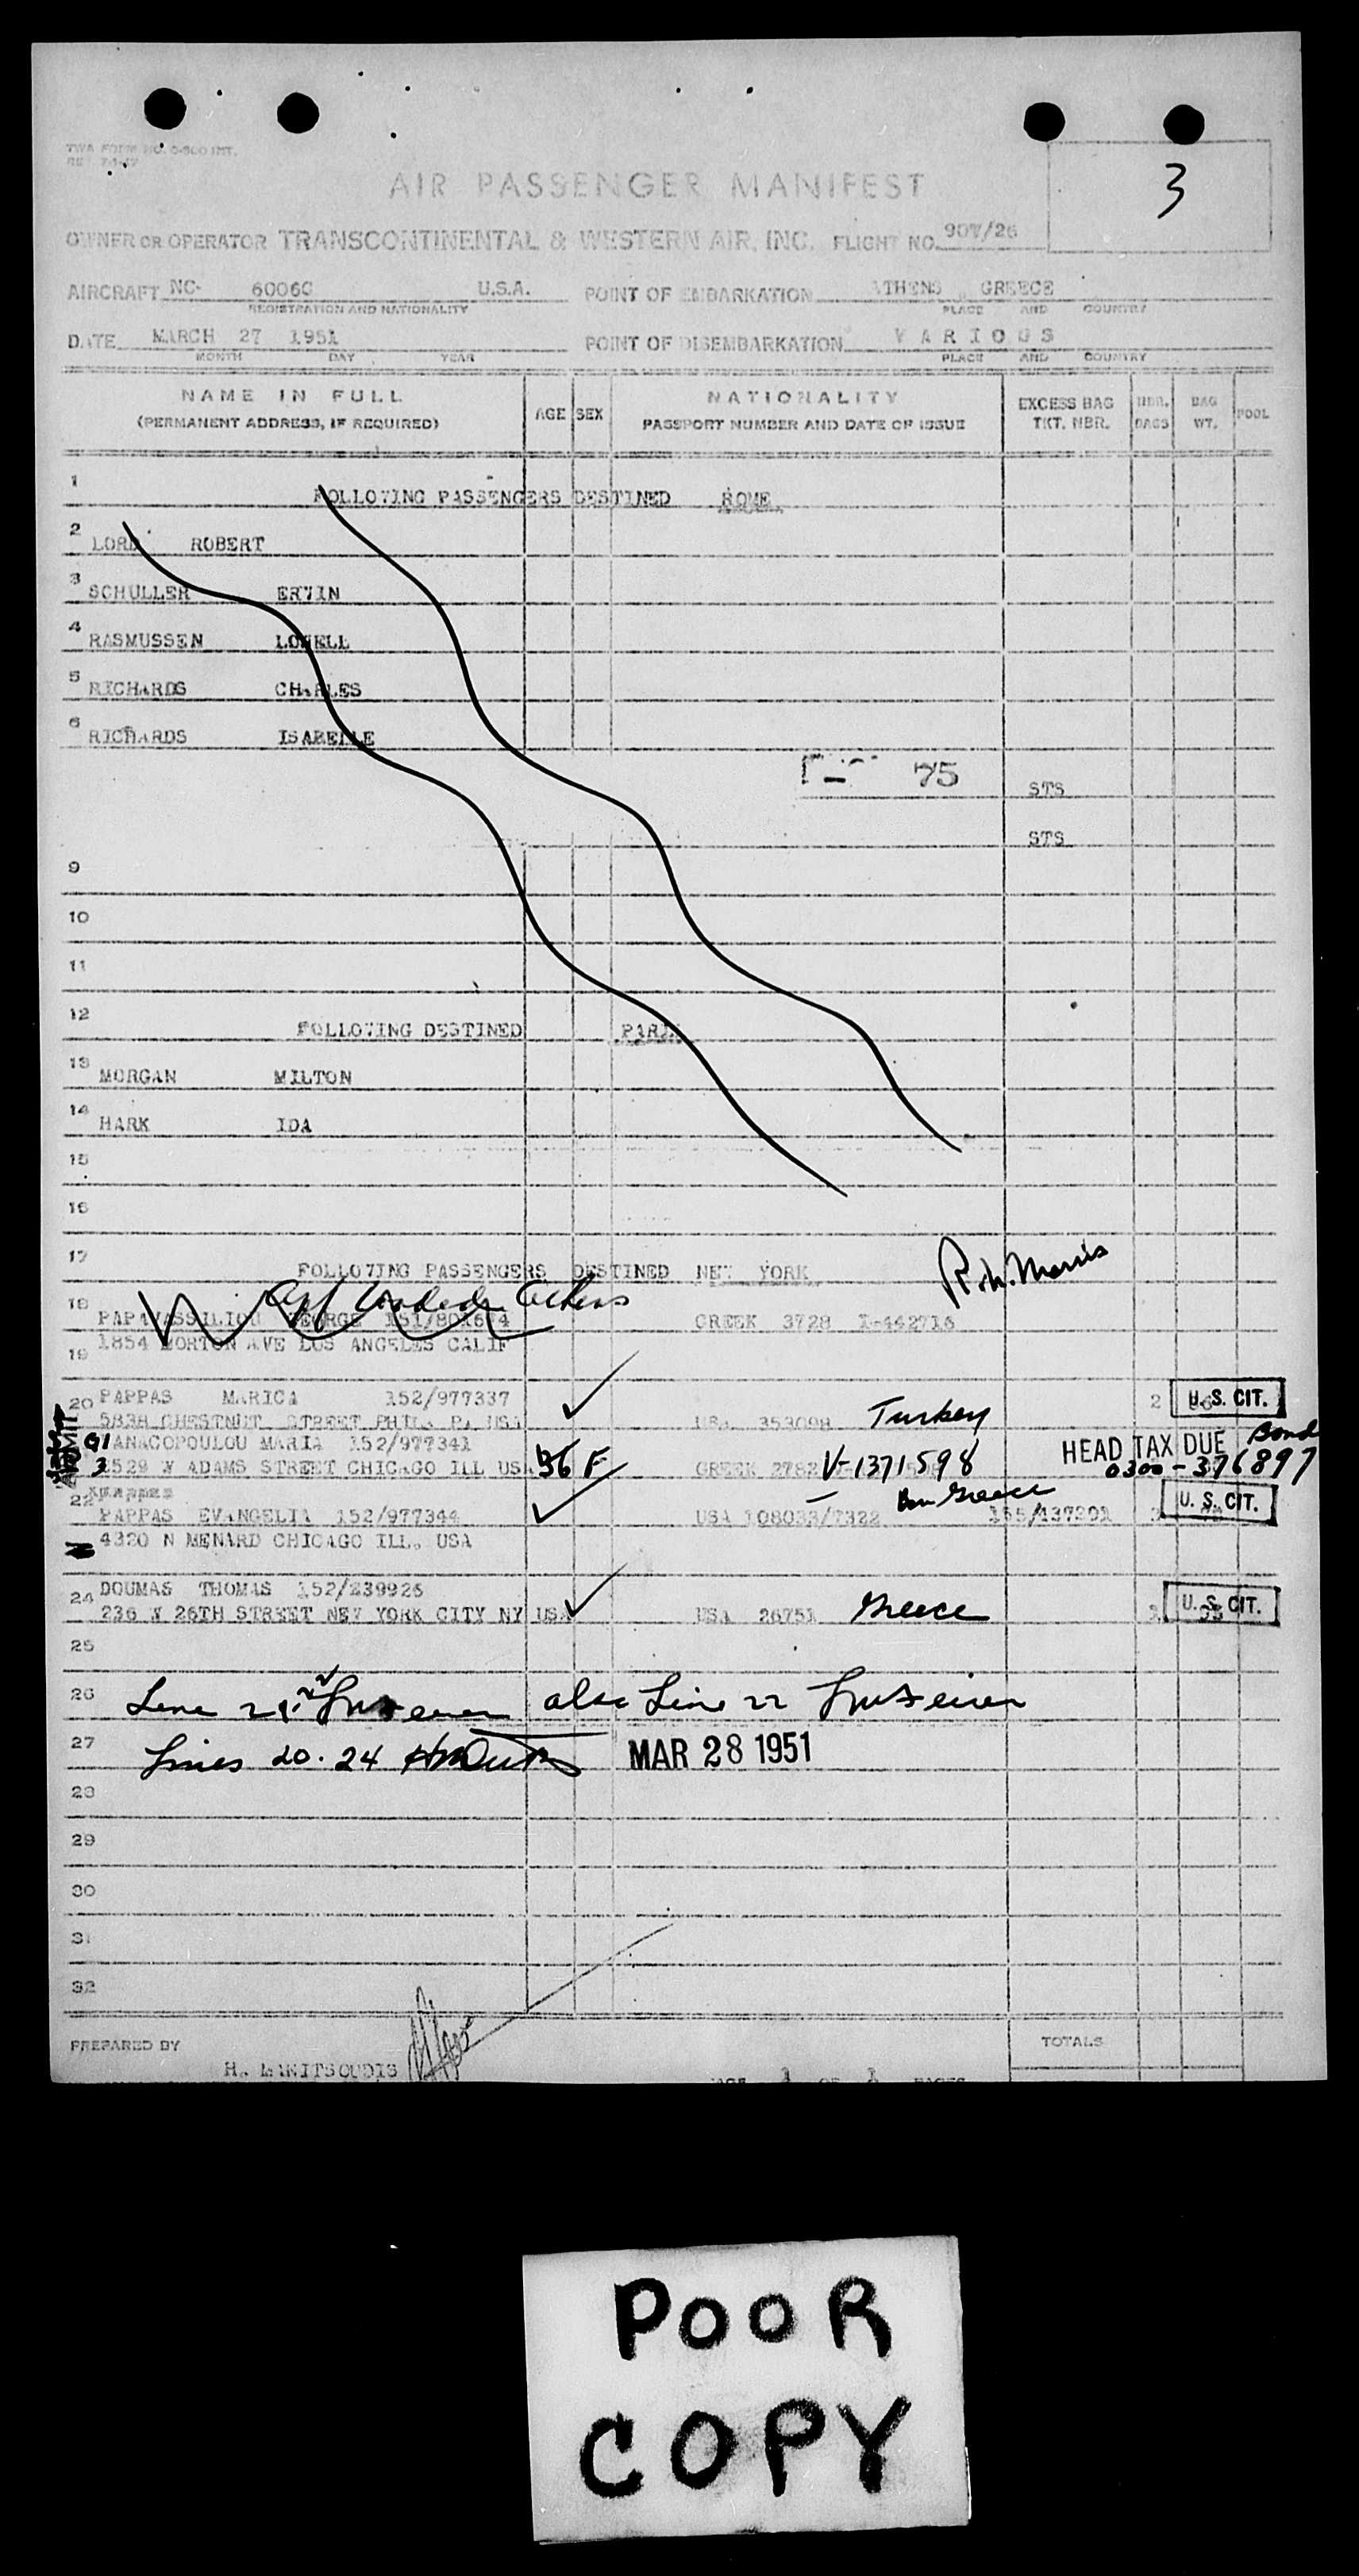 TWA FORM NO. 0-500 INT.
3
AIR PASSENGER MANIFEST
OWNER OR OPERATOR TRANSCONTINENTAL & WESTERN AIR, INC. FLIGHT NO. 907/26
AIRCRAFT NC- 6006C U.S.A. POINT OF EMBARKATION ATHENS GREECE
REGISTRATION AND NATIONALITY PLACE AND COUNTRY
DATE MARCH 27 1951 POINT OF DISEMBARKATION VARIOUS
MONTH DAY YEAR PLACE AND COUNTRY
NAME IN FULL AGE SEX NATIONALITY EXCESS BAG NBR. BAG POOL
(PERMANENT ADDRESS, IF REQUIRED) PASSPORT NUMBER AND DATE OF ISSUE TKT. NBR. BAGS WT.
1 FOLLOWING PASSENGERS DESTINED ROME
2 LORD ROBERT
3 SCHULLER ERVIN
4 RASMUSSEN LOWELL
5 RICHARDS CHARLES
6 RICHARDS ISABELLE
75 STS
STS
9
10
11
12 FOLLOWING DESTINED PARIS
13 MORGAN MILTON
14 HARK IDA
15
16
17 FOLLOWING PASSENGERS DESTINED NEW YORK
18 PAPAVASSILIOU GEORGE 151/801674 GREEK 3728 I-442716
19 1854 MORTON AVE LOS ANGELES CALIF
20 PAPPAS MARICA 152/977337 2 U. S. CIT.
5838 CHESTNUT STREET PHILA PA USA USA 353098 Turkey
GIANACOPOULOU MARIA 152/977341 HEAD TAX DUE Bond
3529 W ADAMS STREET CHICAGO ILL USA 36 F GREEK 2782 V-1371598 0300-376897
22 PAPPAS EVANGELIA 152/977344 USA Born Greece U. S. CIT.
4320 N MENARD CHICAGO ILL. USA
24 DOUMAS THOMAS 152/239926
236 W 26TH STREET NEW YORK CITY NY USA USA 26751 Greece U. S. CIT.
25
26 Line also Line 22
27 Lines 20. 24 MAR 28 1951
28
29
30
31
32
PREPARED BY TOTALS
H. PAGE 1 OF 1 PAGES
POOR
COPY